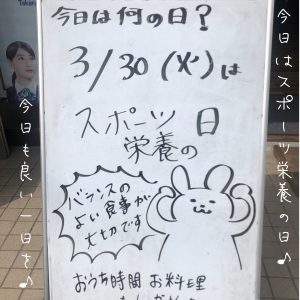 今日は何の日?
3/30(火)は
スポーツ
栄養の日
バランスの
よい食事が
大切です
おうち時間 お料理
今日はスポーツ栄養の日♪
今日も良い一日を♪